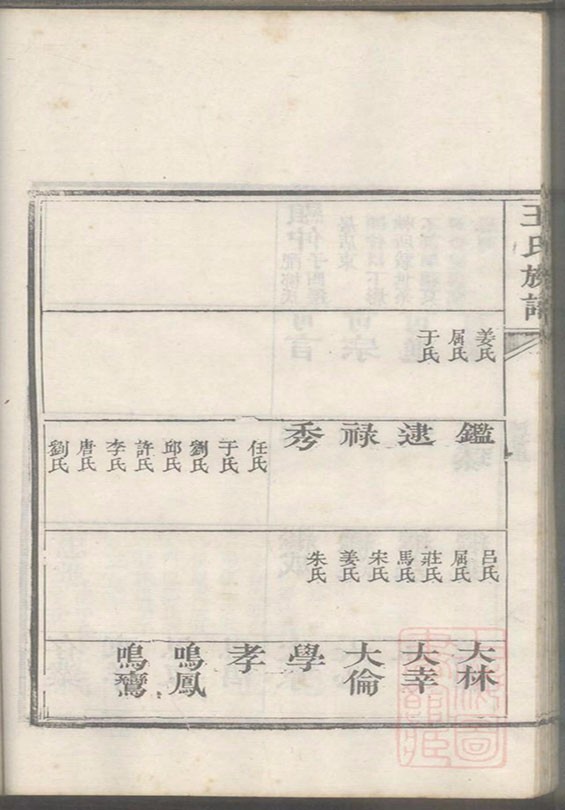 王氏族譜
姜氏
屈氏
于氏
鑑
逮
禄
秀
任氏
于氏
劉氏
邱氏
許氏
李氏
唐氏
劉氏
呂氏
屈氏
莊氏
馬氏
宋氏
姜氏
朱氏
大林
大幸
大倫
學
孝
鳴鳳
鳴鸞